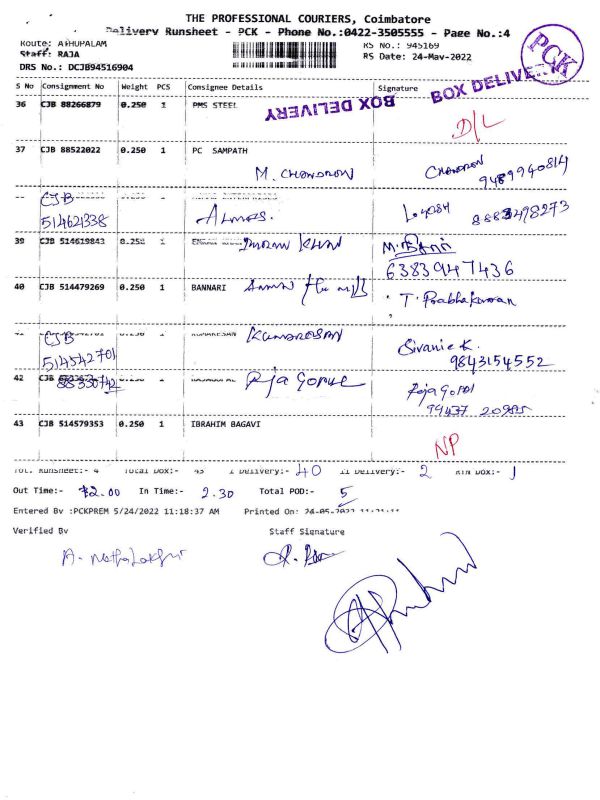 THE PROFESSIONAL COURIERS, Coimbatore
Delivery Runsheet - PCK - Phone No.:0422-3505555 - Page No.:4
Route: ATHUPALAM RS No.: 945169
Staff: RAJA RS Date: 24-May-2022
DRS No.: DCJB94516904
PCK
BOX DELIVE
BOX DELIVERY
S No Consignment No Weight PCS Consignee Details Signature
36 CJB 88266879 0.250 1 PMS STEEL D/L
37 CJB 88522022 0.250 1 PC SAMPATH
M. CHANDRAN CHANDRAN 9489940814
CJB
514621338 8883498273
39 CJB 514619843 0.250 1 IMRAN KHAN
6383947436
40 CJB 514479269 0.250 1 BANNARI T. Prabhakaran
CJB KUMARESAN Kumaresan
514542701 Sivanie K.
9843154552
42 CJB Raja Gopal
43 CJB 514579353 0.250 1 IBRAHIM BAGAVI NP
Tot. Runsheet:- 4 Total Box:- 43 I Delivery:- 40 II Delivery:- 2 RTN Box:- 1
Out Time:- 12.00 In Time:- 2.30 Total POD:- 5
Entered By :PCKPREM 5/24/2022 11:18:37 AM Printed On: 24-05-2022
Verified By Staff Signature